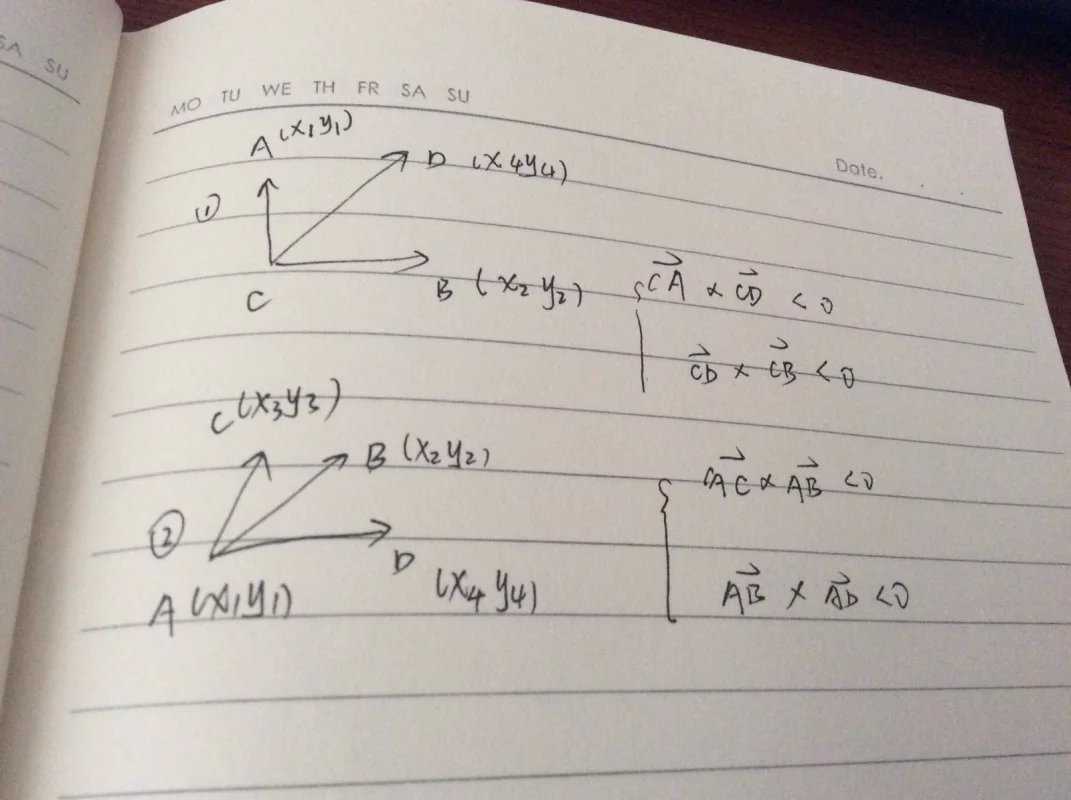 SA SU
MO TU WE TH FR SA SU
Date.
A (x₁y₁)
D (x₄y₄)
①
C
B (x₂y₂)
CA × CD < 0
CD × CB < 0
C (x₃y₃)
B (x₂y₂)
AC × AB < 0
②
D
A (x₁y₁)
(x₄y₄)
AB × AD < 0